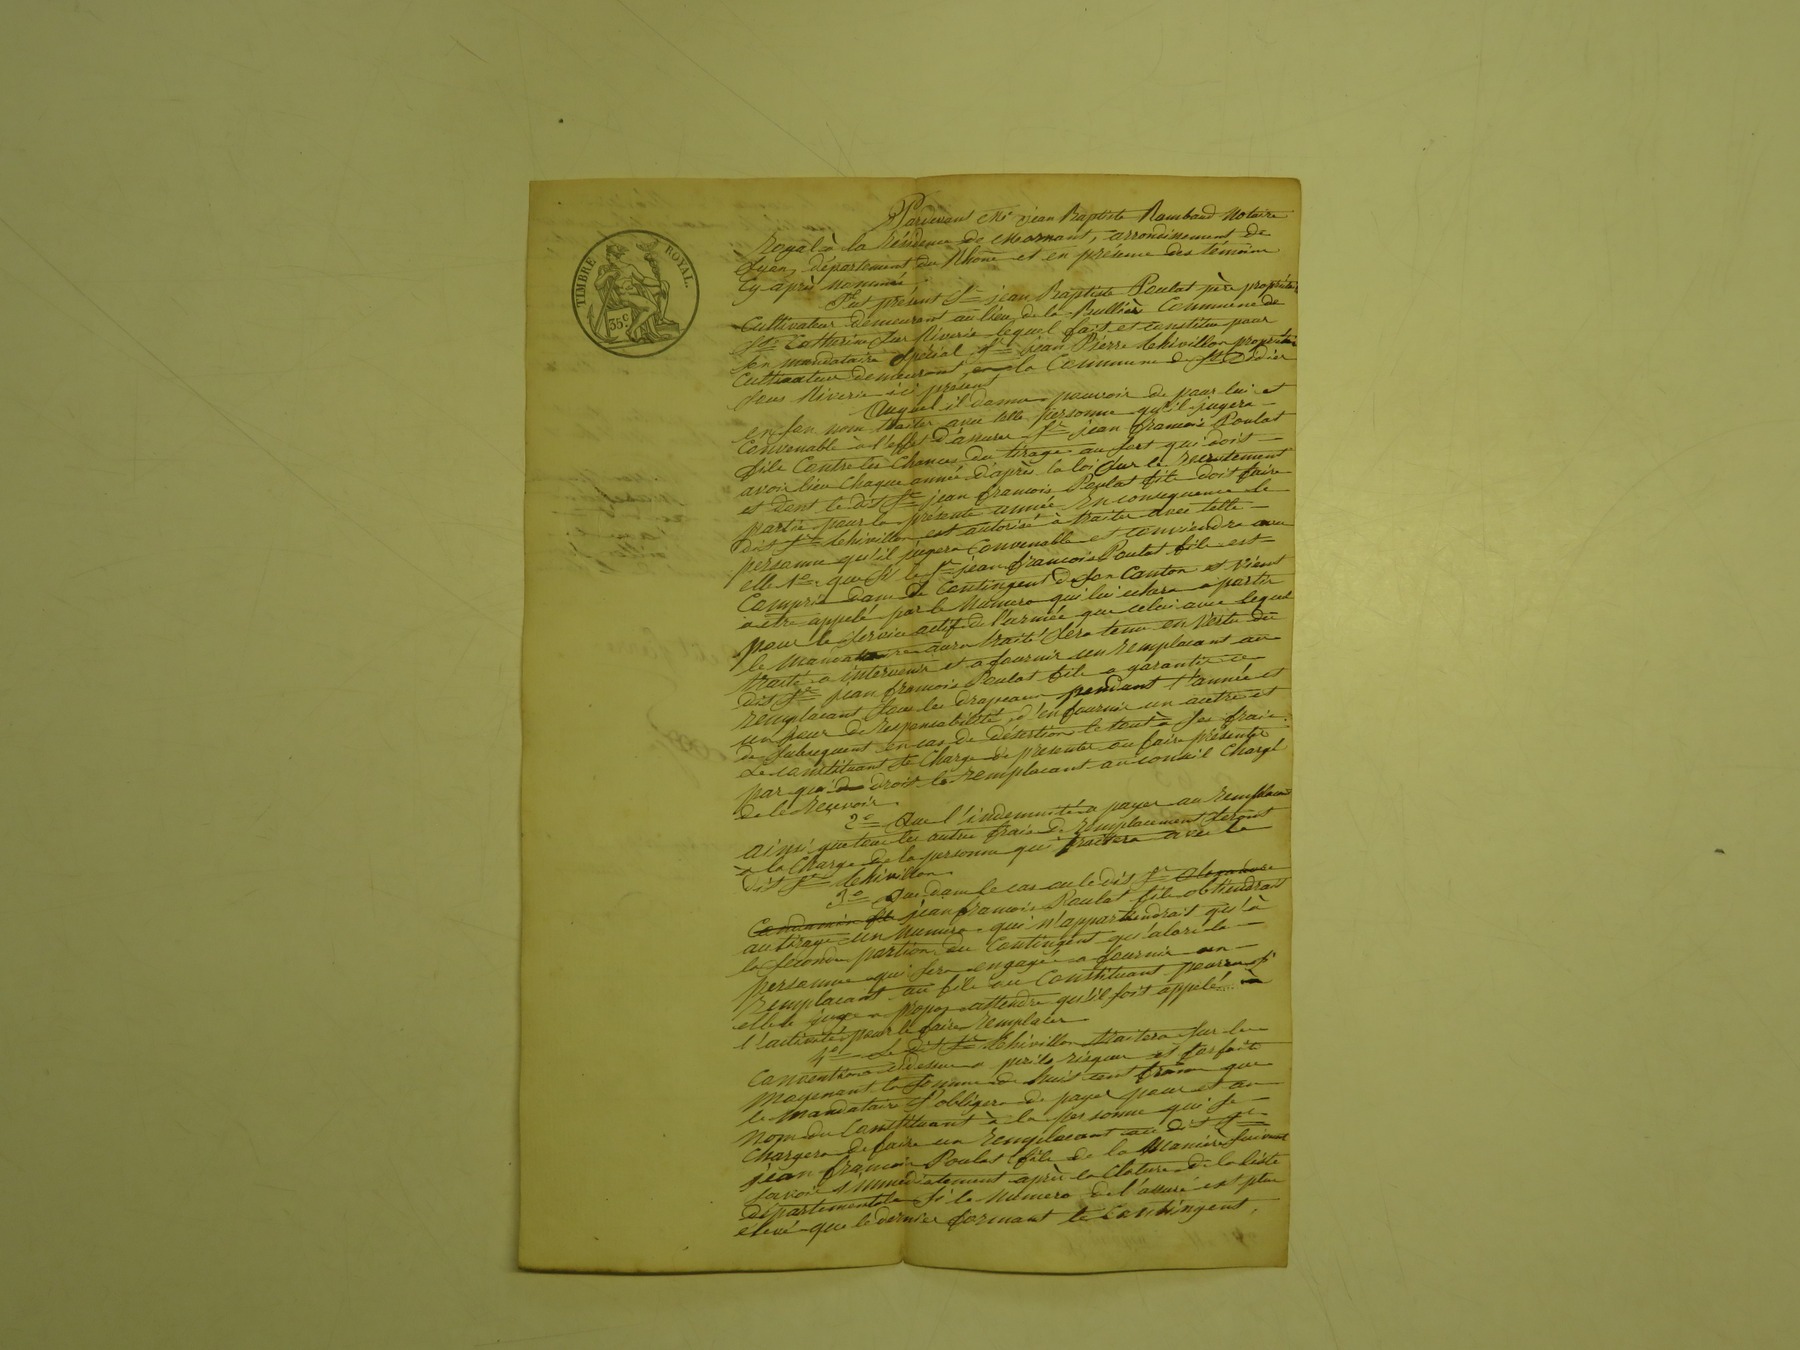 TIMBRE ROYAL.
35 c.
Pardevant Me jean Baptiste Rambaud Notaire
Royal à la Résidence de Mornant, arrondissement de
Lyon, département du Rhône et en présence des témoins
Cy après Nommés
Fut présent Sr jean Baptiste Poulat père propriétaire
Cultivateur demeurant au lieu de la Commune de
Ste Catherine sur Riverie lequel fait et constitue pour
son mandataire spécial, Sr jean Pierre Chivillon propriétaire
Cultivateur demeurant en la Commune de St Didier
sous Riverie ici présent
Auquel il donne pouvoir de pour lui et
en son nom traiter avec telle personne qu'il jugera
Convenable à l'effet d'assurer Sr jean francois Poulat
fils Contre les Chances du tirage au sort qui doit
avoir lieu Chaque année d'après la loi sur le recrutement
et dont le dit Sr jean francois Poulat fils doit faire
partie pour la présente année En consequence le
dit Sr Chivillon est autorisé à traiter avec telle
personne qu'il jugera Convenable et conviendra avec
elle 1o que si le Sr jean francois Poulat fils est
Compris dans le Contingent de son Canton et vient
a etre appelé par le Numero qui lui echera a partir
pour le service actif de l'armée que celui avec lequel
le Mandataire aura traité sera tenu en vertu du
traité a intervenir et a fournir un remplacant au
dit Sr jean francois Poulat fils a garantir ce
remplacant sous les drapeaux pendant l'année et
un jour de responsabilité, d'en fournir un autre et
de subsequent en cas de désertion le tout à ses frais.
Le constituant se Charge de présenter ou faire présenter
par qui de droit le remplacant au conseil Chargé
de le recevoir
2o Que l'indemnité a payer au remplacant
ainsi que tous les autres frais de remplacement seront
à la Charge de la personne qui traitera avec le
dit Sr Chivillon
3o Que dans le cas ou le dit Sr
jean francois Poulat fils obtiendrait
au tirage un Numero qui n'appartiendrait qu'à
la seconde portion du Contingent qu'alors la
personne qui sera engagée a fournir un
remplacant au fils du Constituant pourra si
elle le juge a propos attendre qu'il soit appelé à
l'activité pour le faire remplacer
4o Le dit Sr Chivillon traitera sur les
Conventions cidessus a perils risques et forfait
Moyenant la somme de huit cent francs que
le Mandataire s'obligera de payer pour et au
Nom du Constituant à la personne qui se
Chargera de faire un remplacant au dit Sr
jean francois Poulat fils de la Manière suivante
savoir immédiatement après la Cloture de la liste
départementale si le Numero de l'assuré est plus
elevé que le dernier formant le contingent,